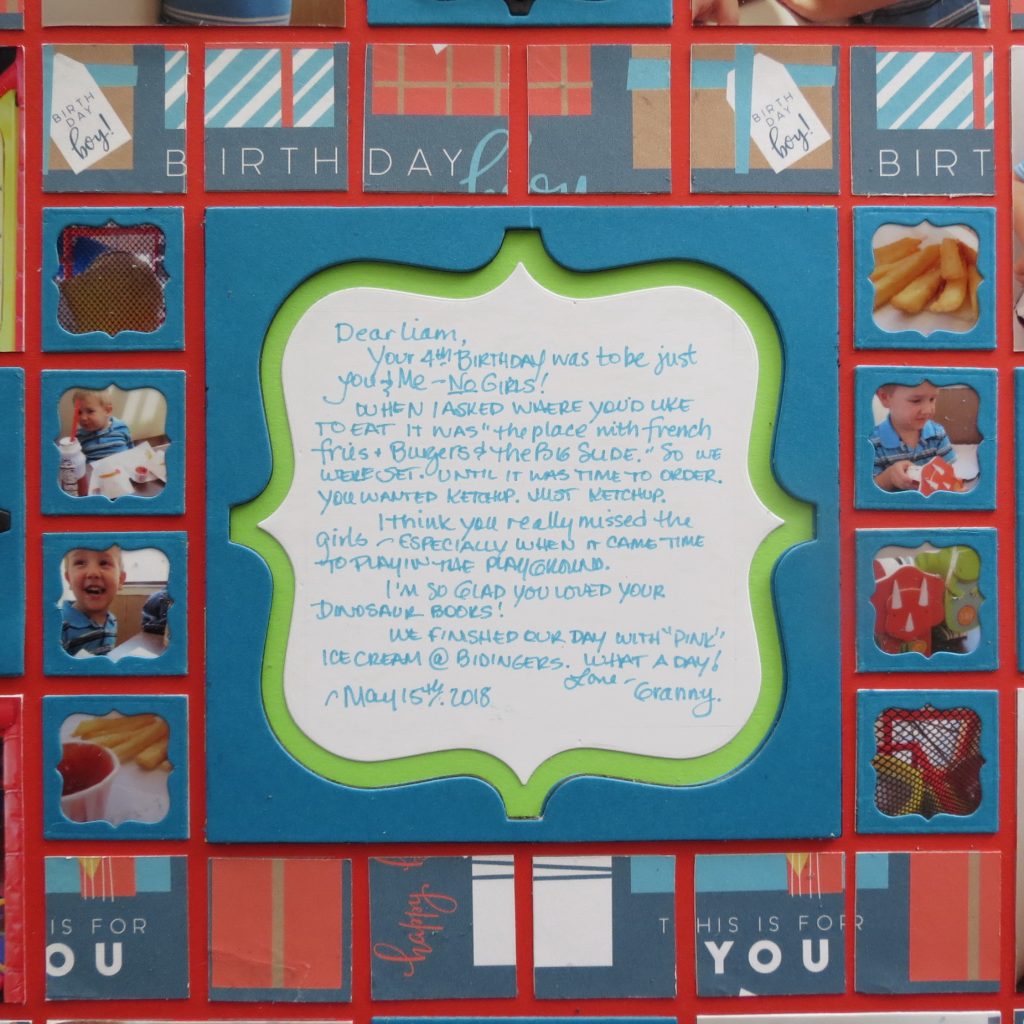 BIRTH
DAY
boy!
BIRTH
DAY
boy!
B
IRTH
DAY
boy
BIRT
Dear Liam,
Your 4th BIRTHDAY was to be just
you & Me - No GIRLS!
WHEN I ASKED WHERE YOU'D LIKE
TO EAT IT WAS "the place with french
fries + Burgers & the BIG SLIDE." SO WE
WERE SET. UNTIL IT WAS TIME TO ORDER.
YOU WANTED KETCHUP. JUST KETCHUP.
I think you really missed the
girls - ESPECIALLY WHEN IT CAME TIME
TO PLAY IN THE PLAYGROUND.
I'M SO GLAD YOU LOVED YOUR
DINOSAUR BOOKS!
WE FINISHED OUR DAY WITH "PINK"
ICE CREAM @ BIDINGERS. WHAT A DAY!
Love -
~ May 15th, 2018 Granny.
IS FOR
OU
happy
THIS IS FOR
YOU